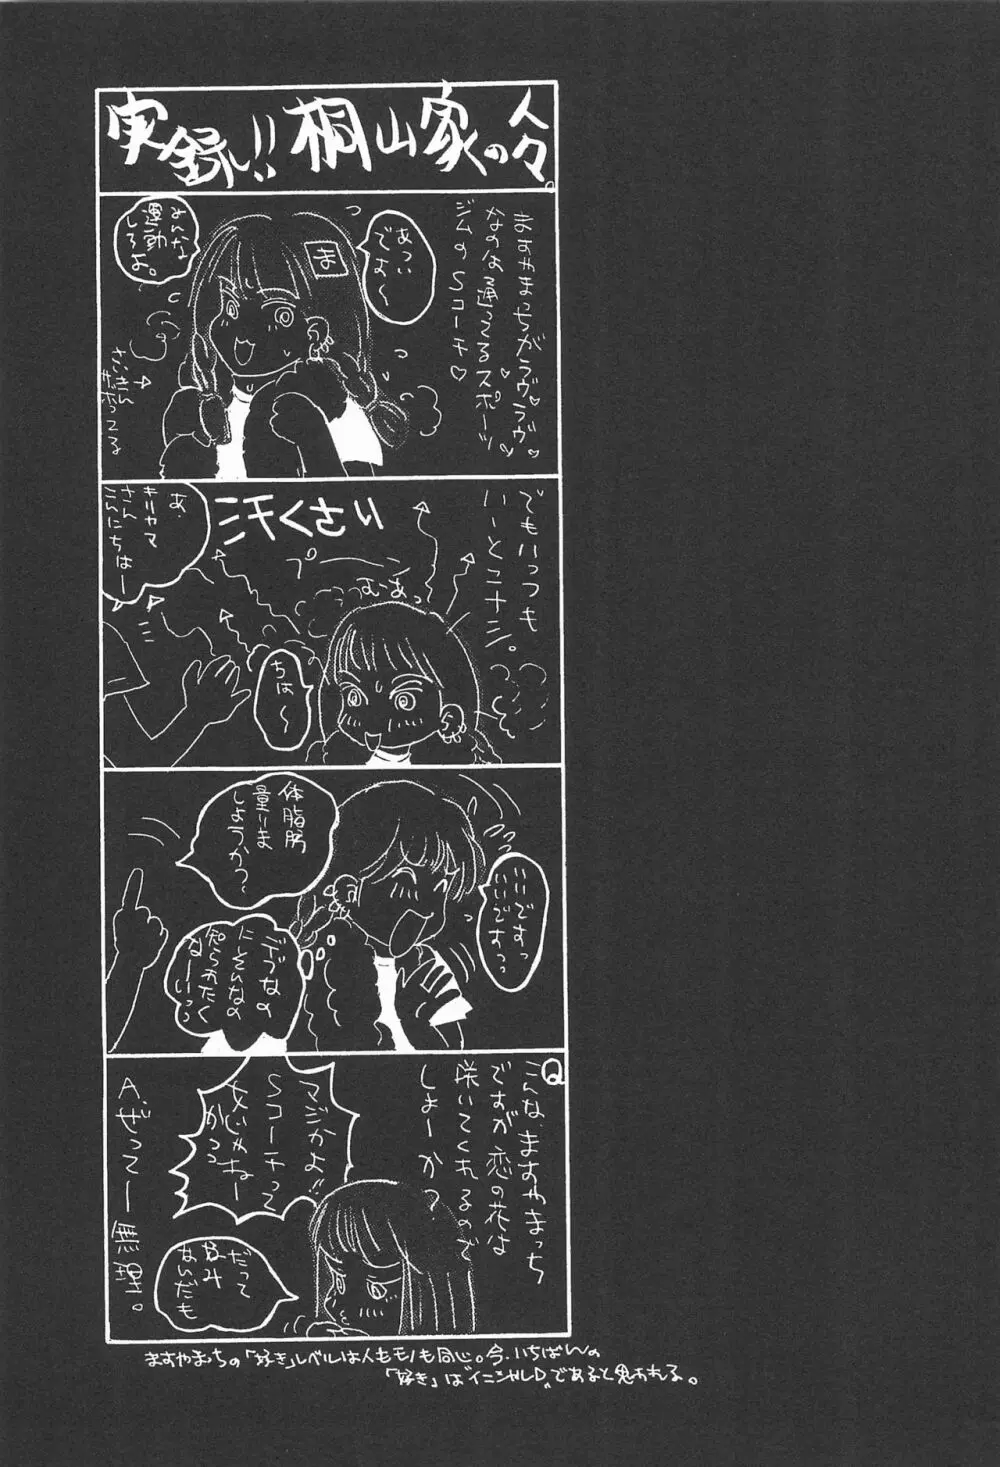 実録!!桐山家の人々。
ますやまっちがラヴ♡ラヴ♡
なのは通ってるスポーツ
ジムのSコーチ♡
あつい
でよ〜
ま
運動
しろよ。
さいきん
サボってる
でもいっつも
いーとこナシ。
汗くさい
プーン
むあっ
あ、
キリヤマ
さん
こんにちはー
ちは〜
いいですっ
いいですっっ
体脂肪
量りま
しょうかっ〜
デブなの
にそんなの
知られたく
なーいっっ
Q
こんな、ますやまっち
ですが恋の花は
咲いてくれるので
しょーか?
マジかよ!!
Sコーチって
だって
好み
なんだも
A.ぜってー無理。
ますやまっちの「好き」レベルは人もモノも同じ。今、いちばんの
「好き」は"イニシャルD"であると思われる。